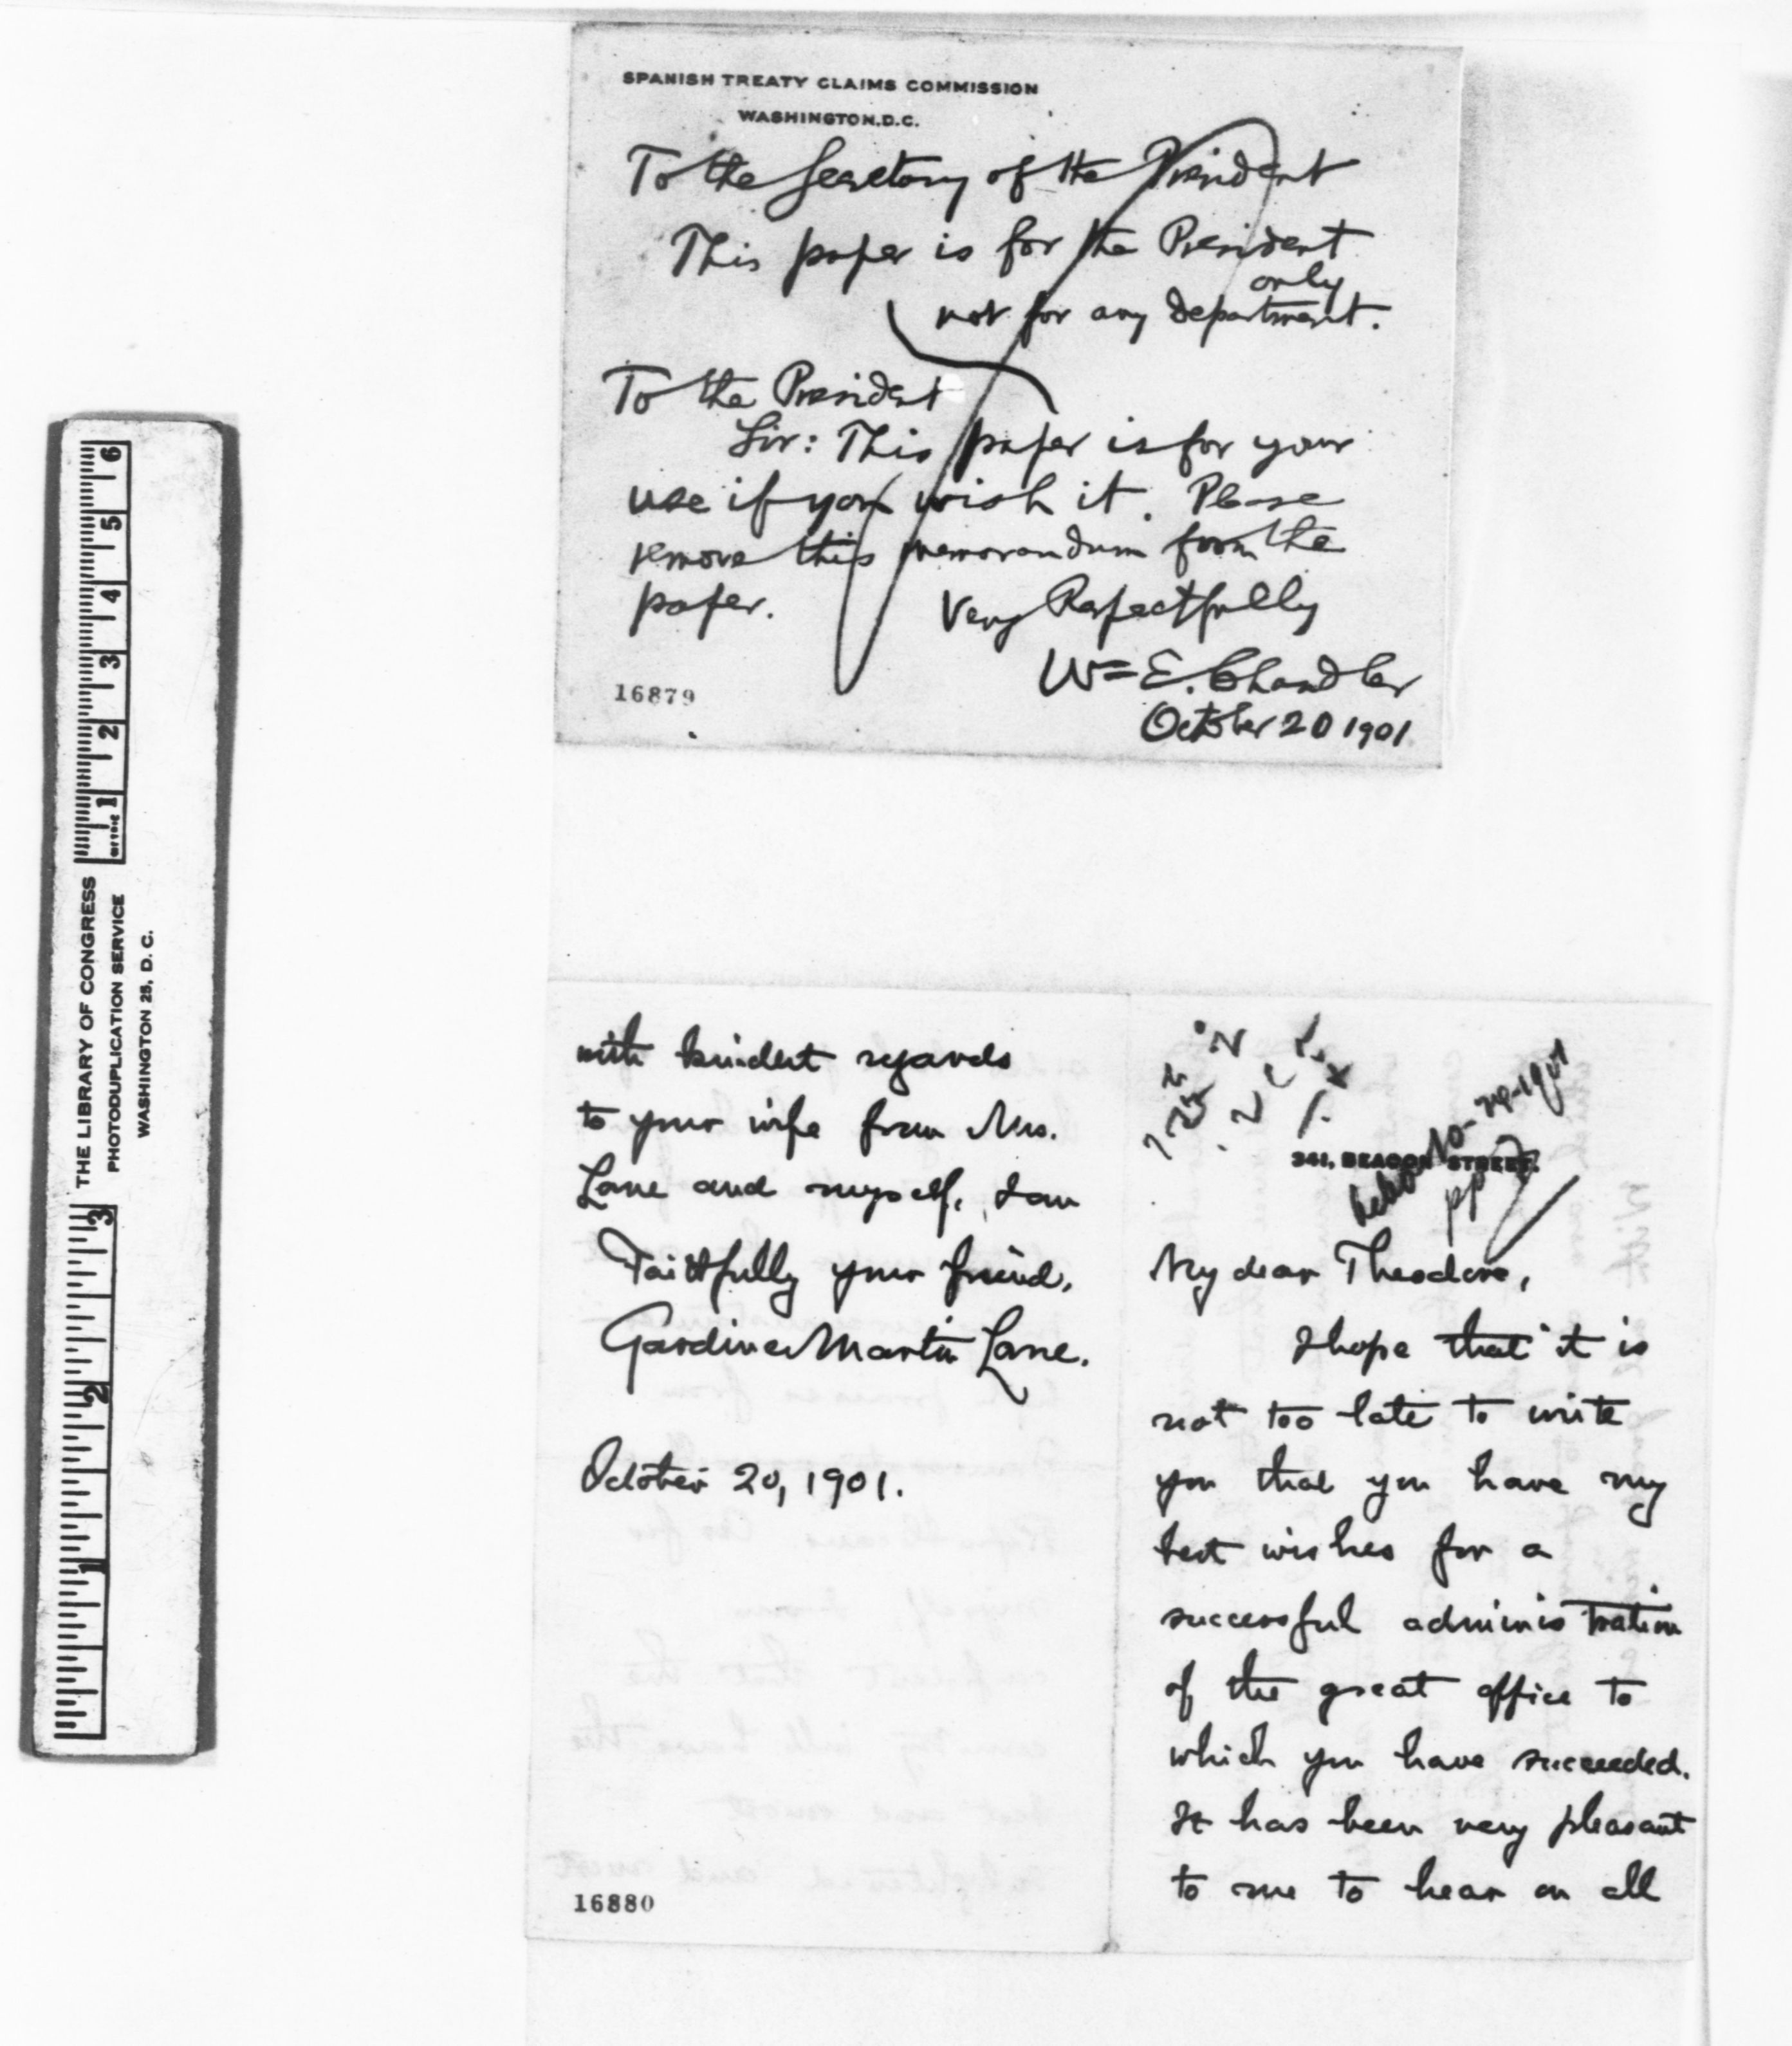 SPANISH TREATY CLAIMS COMMISSION
WASHINGTON, D.C.
To the Secretary of the President
This paper is for the President
only
not for any department.
To the President
Sir: This paper is for your
use if you wish it. Please
remove this memorandum from the
paper.
Very Respectfully
Wm E. Chandler
October 20 1901
16879
with kindest regards
to your wife from Mrs.
Lane and myself, I am
Faithfully your friend,
Gardiner Martin Lane.
October 20, 1901.
16880
341, BEACON STREET.
10-22-1901
My dear Theodore,
I hope that it is
not too late to write
you that you have my
best wishes for a
successful administration
of the great office to
which you have succeeded.
It has been very pleasant
to me to hear on all
6
5
4
3
2
1
THE LIBRARY OF CONGRESS
PHOTODUPLICATION SERVICE
WASHINGTON 25, D. C.
3
2
1